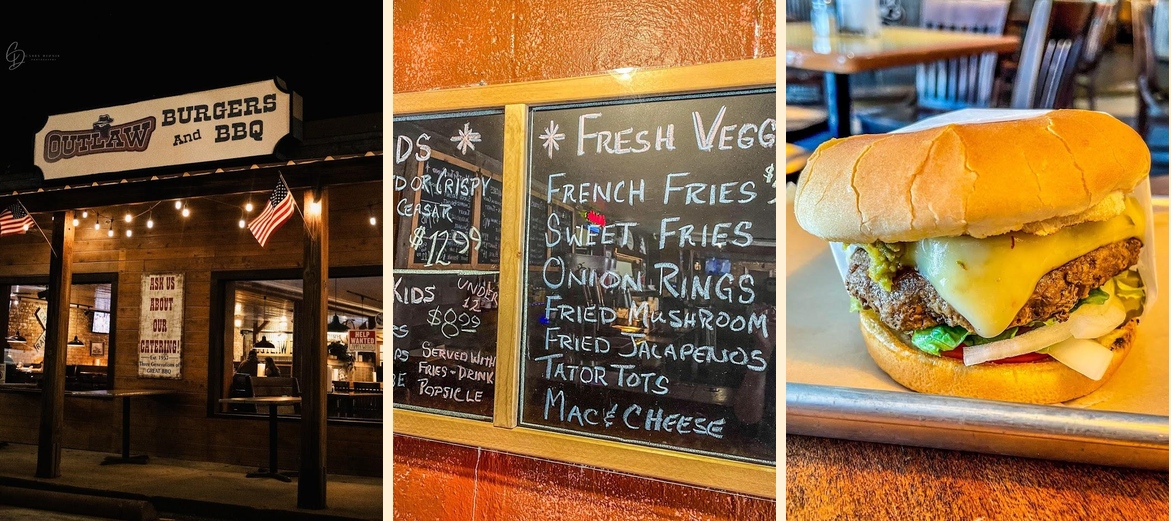 OUTLAW BURGERS
And BBQ
ASK US
ABOUT
OUR
CATERING!
HELP
WANTED
DS *
D OR CRISPY
CEASAR
$12.99
KIDS UNDER
12
$8.99
SERVED WITH
FRIES - DRINK
POPSICLE
* FRESH VEGG
FRENCH FRIES $
SWEET FRIES
ONION RINGS
FRIED MUSHROOM
FRIED JACAPENOS
TATOR TOTS
MAC & CHEESE